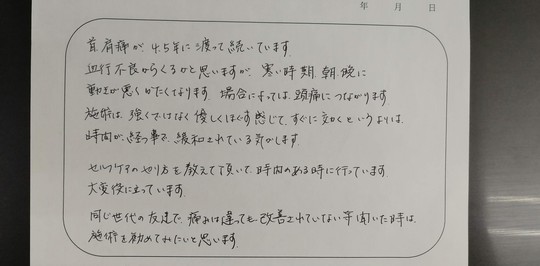 年 月 日
首肩痛が、4.5年に渡って続いています。
血行不良からくるかと思いますが、寒い時期、朝、晩に
動きが悪くかたくなります。場合によっては、頭痛につながります
施術は、強くではなく優しくほぐす感じで、すぐに効くというよりは、
時間が、経つ事で、緩和されている気がします。
セルフケアのやり方を教えて頂いて、時間のある時に行っています。
大変役に立っています。
同じ世代の友達で、痛みは違っても、改善されていない等聞いた時は、
施術を勧めてみたいと思います。